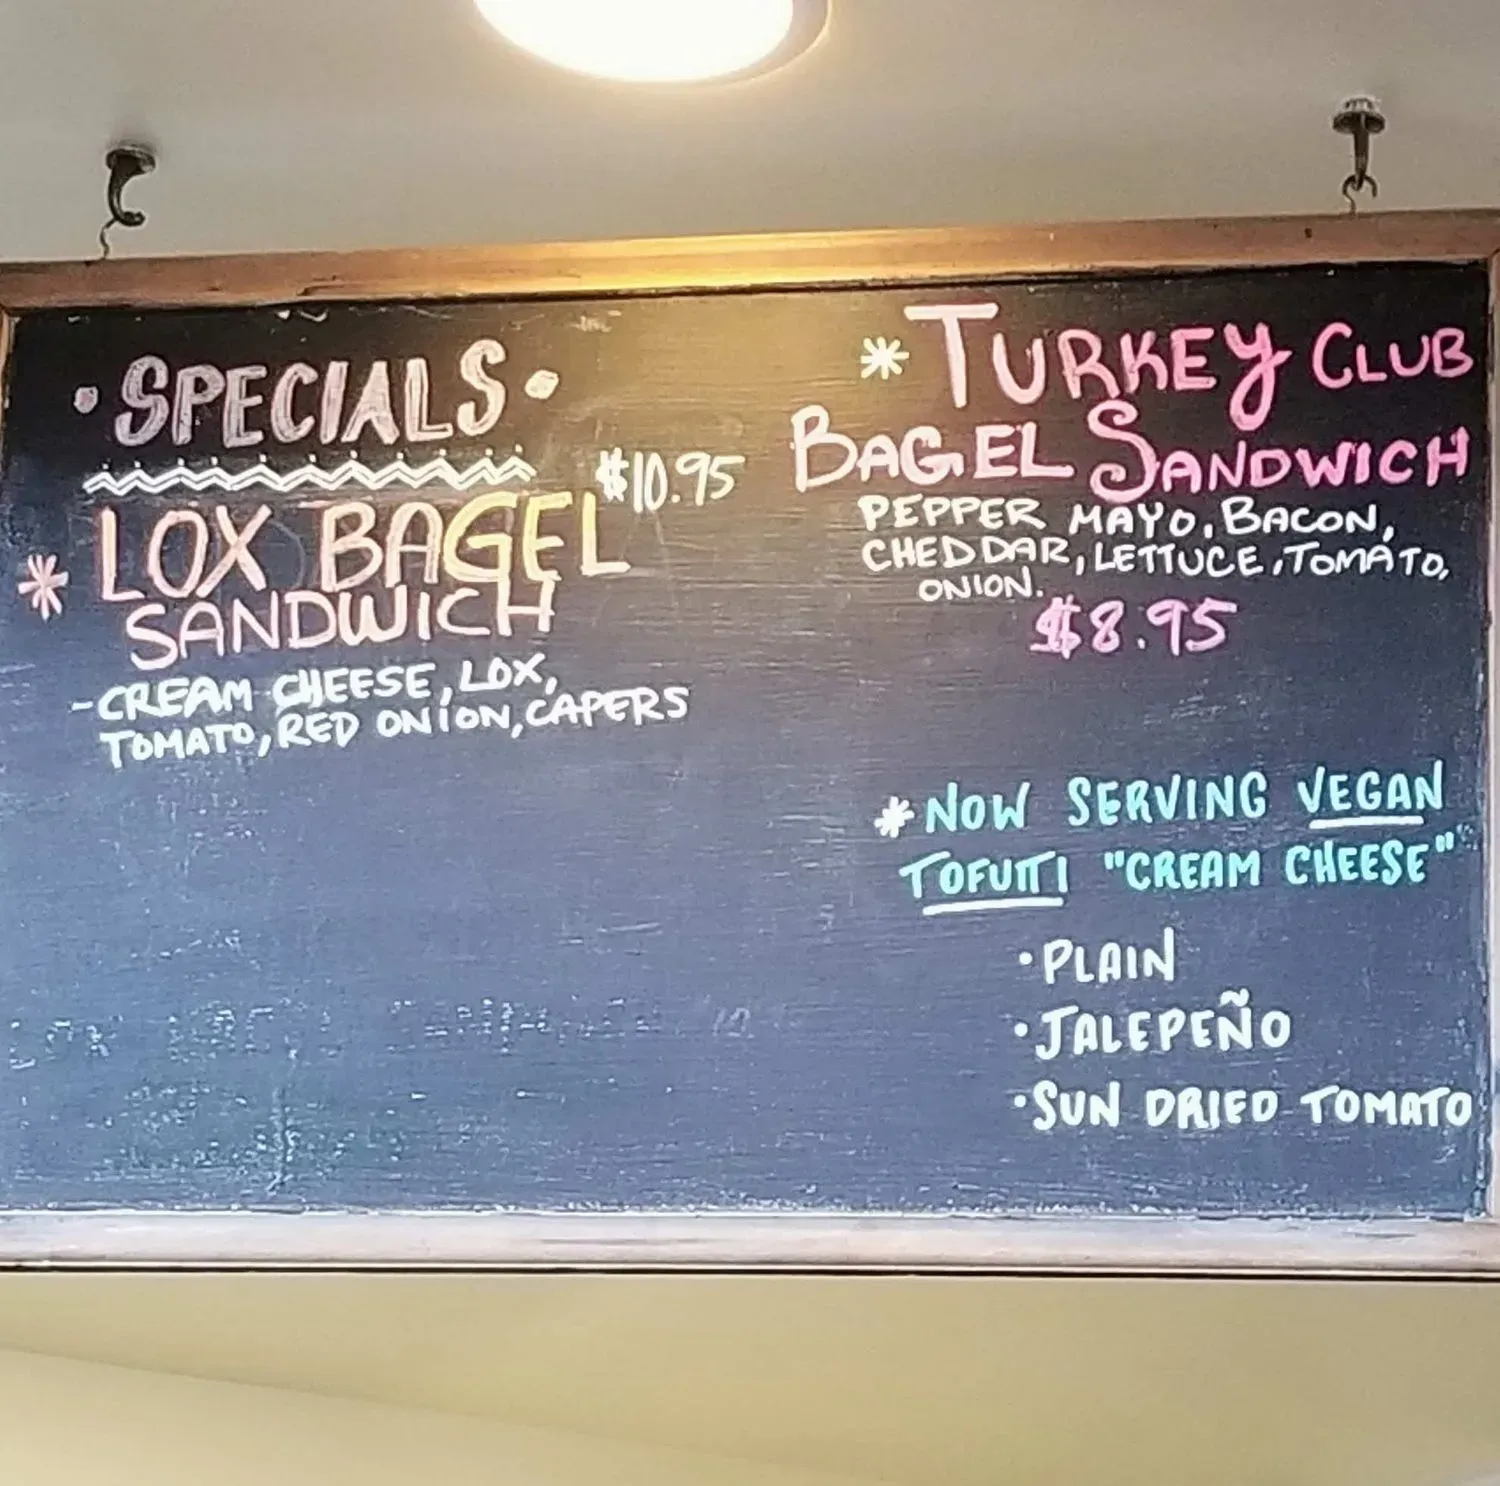 • SPECIALS •
* LOX BAGEL $10.95
SANDWICH
-CREAM CHEESE, LOX,
TOMATO, RED ONION, CAPERS
* TURKEY CLUB
BAGEL SANDWICH
PEPPER MAYO, BACON,
CHEDDAR, LETTUCE, TOMATO,
ONION.
$8.95
* NOW SERVING VEGAN
TOFUTTI "CREAM CHEESE"
• PLAIN
• JALEPEÑO
• SUN DRIED TOMATO